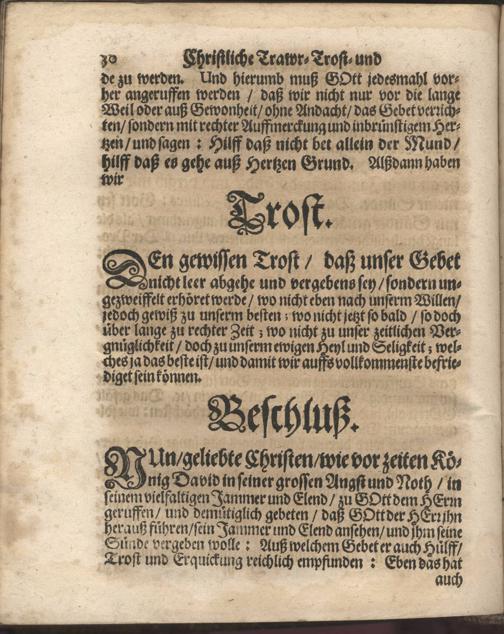 30 Christliche Trawr- Trost- und
de zu werden. Und hierumb muß GOtt jedesmahl vor-
her angeruffen werden / daß wir nicht nur vor die lange
Weil oder auß Gewonheit / ohne Andacht / das Gebet verrich-
ten / sondern mit rechter Auffmerckung und inbrünstigem Her-
tzen / und sagen : Hilff daß nicht bet allein der Mund /
hilff daß es gehe auß Hertzen Grund. Alßdann haben
wir
Trost.
DEn gewissen Trost / daß unser Gebet
nicht leer abgehe und vergebens sey / sondern un-
gezweiffelt erhöret werde / wo nicht eben nach unserm Willen /
jedoch gewiß zu unserm besten ; wo nicht jetzt so bald / so doch
über lange zu rechter Zeit ; wo nicht zu unser zeitlichen Ver-
gnüglichkeit / doch zu unserm ewigen Heyl und Seligkeit ; wel-
ches ja das beste ist / und damit wir auffs vollkommenste befrie-
diget sein können.
Beschluß.
NUn / geliebte Christen / wie vor zeiten Kö-
nig David in seiner grossen Angst und Noth / in
seinem vielfaltigen Jammer und Elend / zu GOtt dem HErrn
geruffen / und demütiglich gebeten / daß GOtt der HErr jhn
herauß führen / sein Jammer und Elend ansehen / und jhm seine
Sünde vergeben wolle : Auß welchem Gebet er auch Hülff /
Trost und Erquickung reichlich empfunden : Eben das hat
auch